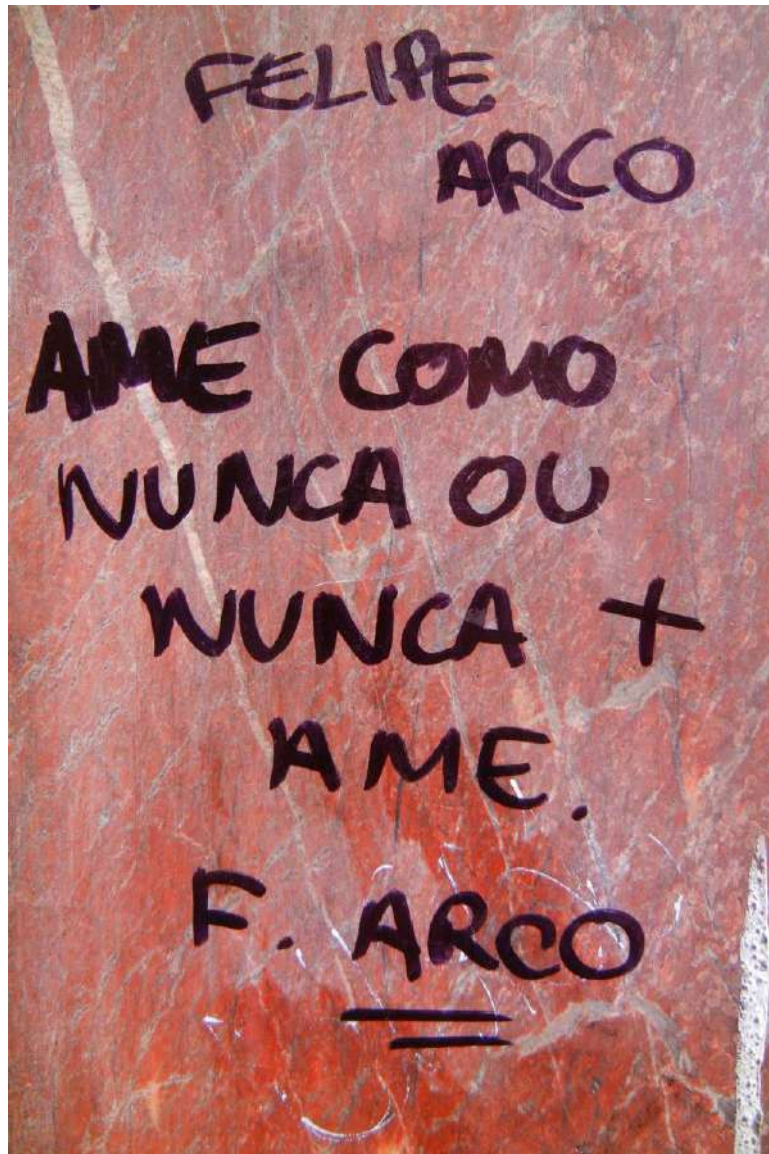 FELIPE
ARCO
AME COMO
NUNCA OU
NUNCA +
AME.
F. ARCO